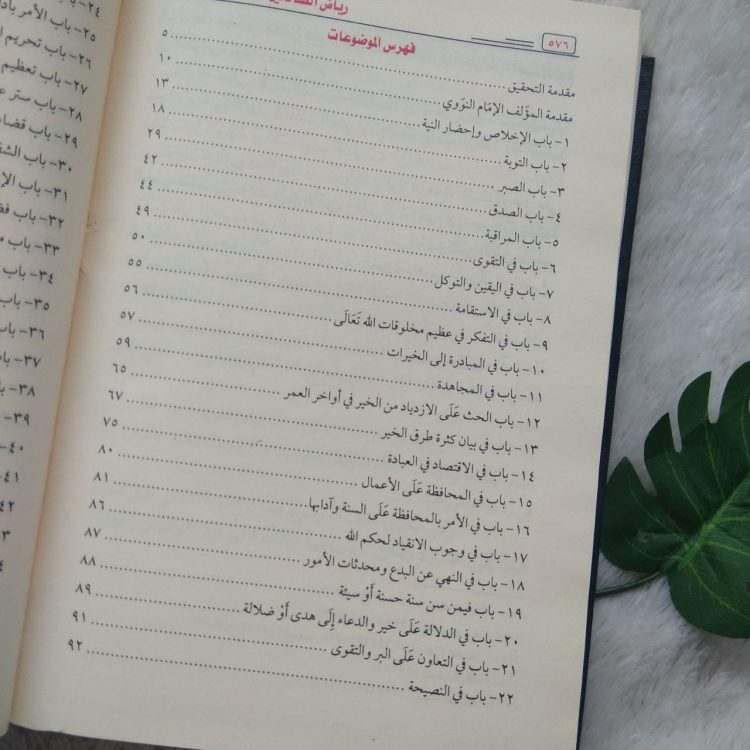 ٥٧٦ رياض
فهرس الموضوعات
مقدمة التحقيق ٥
مقدمة المؤلف الإمَام النوَوي ١٠
١- باب الإخلاص وإحضار النية ١٣
٢- باب التوبة ١٨
٣- باب الصبر ٢٩
٤- باب الصدق ٤٢
٥- باب المراقبة ٤٤
٦- باب في التقوى ٤٩
٧- باب في اليقين والتوكل ٥٠
٨- باب في الاستقامة ٥٥
٩- باب في التفكر في عظيم مخلوقات الله تَعَالَى ٥٦
١٠- باب في المبادرة إلى الخيرات ٥٧
١١- باب في المجاهدة ٥٩
١٢- باب الحث عَلَى الازدياد من الخير في أواخر العمر ٦٥
١٣- باب في بيان كثرة طرق الخير ٦٧
١٤- باب في الاقتصاد في العبادة ٧٥
١٥- باب في المحافظة عَلَى الأعمال ٨٠
١٦- باب في الأمر بالمحافظة عَلَى السنة وآدابها ٨١
١٧- باب في وجوب الانقياد لحكم الله ٨٦
١٨- باب في النهي عن البدع ومحدثات الأمور ٨٧
١٩- باب فيمن سن سنة حسنة أَوْ سيئة ٨٨
٢٠- باب في الدلالة عَلَى خير والدعاء إِلَى هدى أَوْ ضلالة ٨٩
٢١- باب في التعاون عَلَى البر والتقوى ٩١
٢٢- باب في النصيحة ٩٢
٢٤-
٢٥- باب الأمر
٢٦- باب تحريم
٢٧- باب تعظيم
٢٨- باب ستر
٢٩- باب
٣٠- باب
٣١- باب
٣٢- باب
٣٣- باب
٣٤- باب
٣٥- باب
٣٦-
٣٧-
٣٨-
٣٩-
٤٠-
٤١-
٤٢